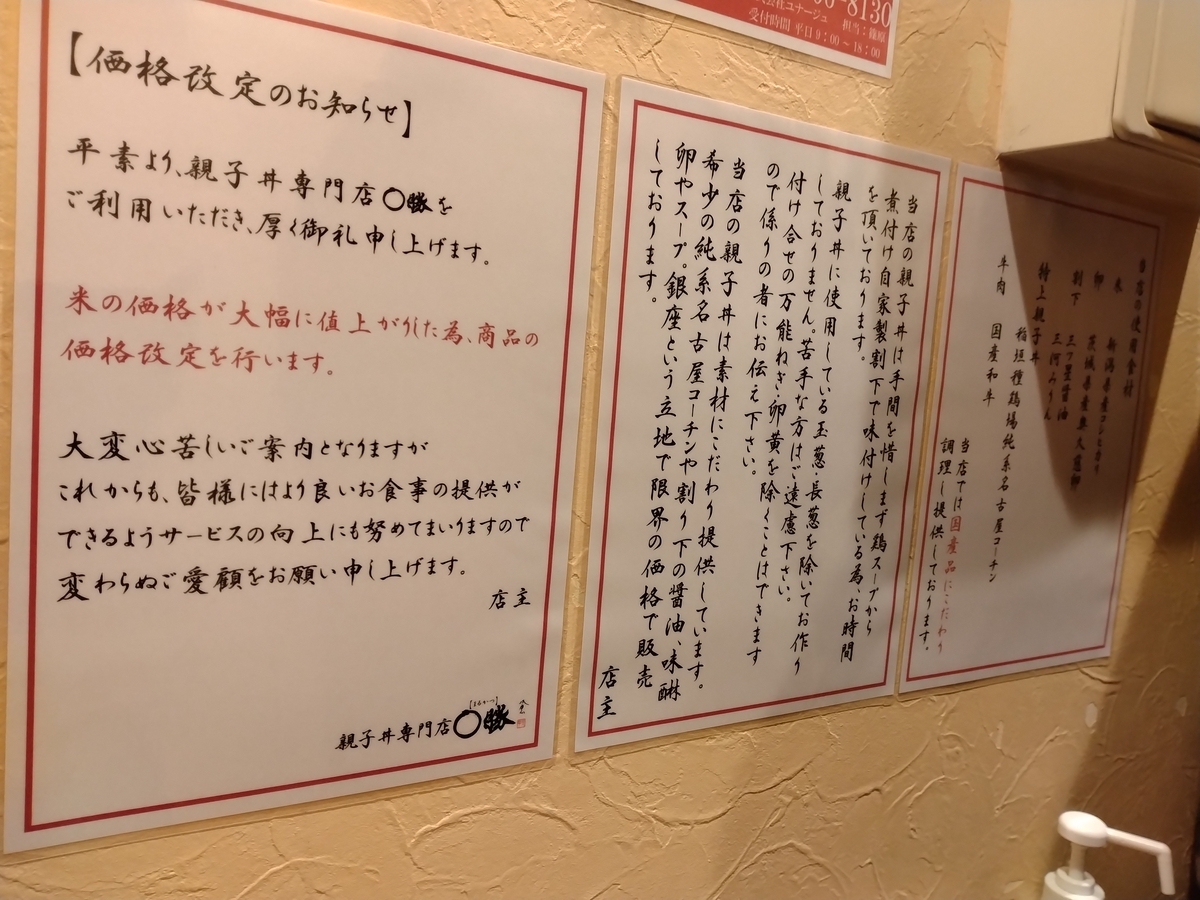 【価格改定のお知らせ】
平素より、親子丼専門店〇勝を
ご利用いただき、厚く御礼申し上げます。
米の価格が大幅に値上がりした為、商品の
価格改定を行います。
大変心苦しいご案内となりますが
これからも、皆様にはより良いお食事の提供が
できるようサービスの向上にも努めてまいりますので
変わらぬご愛顧をお願い申し上げます。
店主
親子丼専門店〇勝
8130
会社ユナージュ 担当:篠原
受付時間 平日9:00~18:00
当店の親子丼は手間を惜しまず鶏スープから
煮付け自家製割下で味付けしている為、お時間
を頂いております。
親子丼に使用している玉葱、長葱を除いてお作り
しておりません。苦手な方はご遠慮下さい。
付け合せの万能ねぎ・卵黄を除くことはできます
ので係りの者にお伝え下さい。
当店の親子丼は素材にこだわり提供しています。
希少の純系名古屋コーチンや割り下の醤油、味醂
卵やスープ。銀座という立地で限界の価格で販売
しております。
店主
当店の使用食材
米 新潟県産コシヒカリ
卵 茨城県産奥久慈卵
割下 三ツ星醤油
三河みりん
特上親子丼
稲垣種鶏場純系名古屋コーチン
牛肉 国産和牛
当店では国産品にこだわり
調理し提供しております。